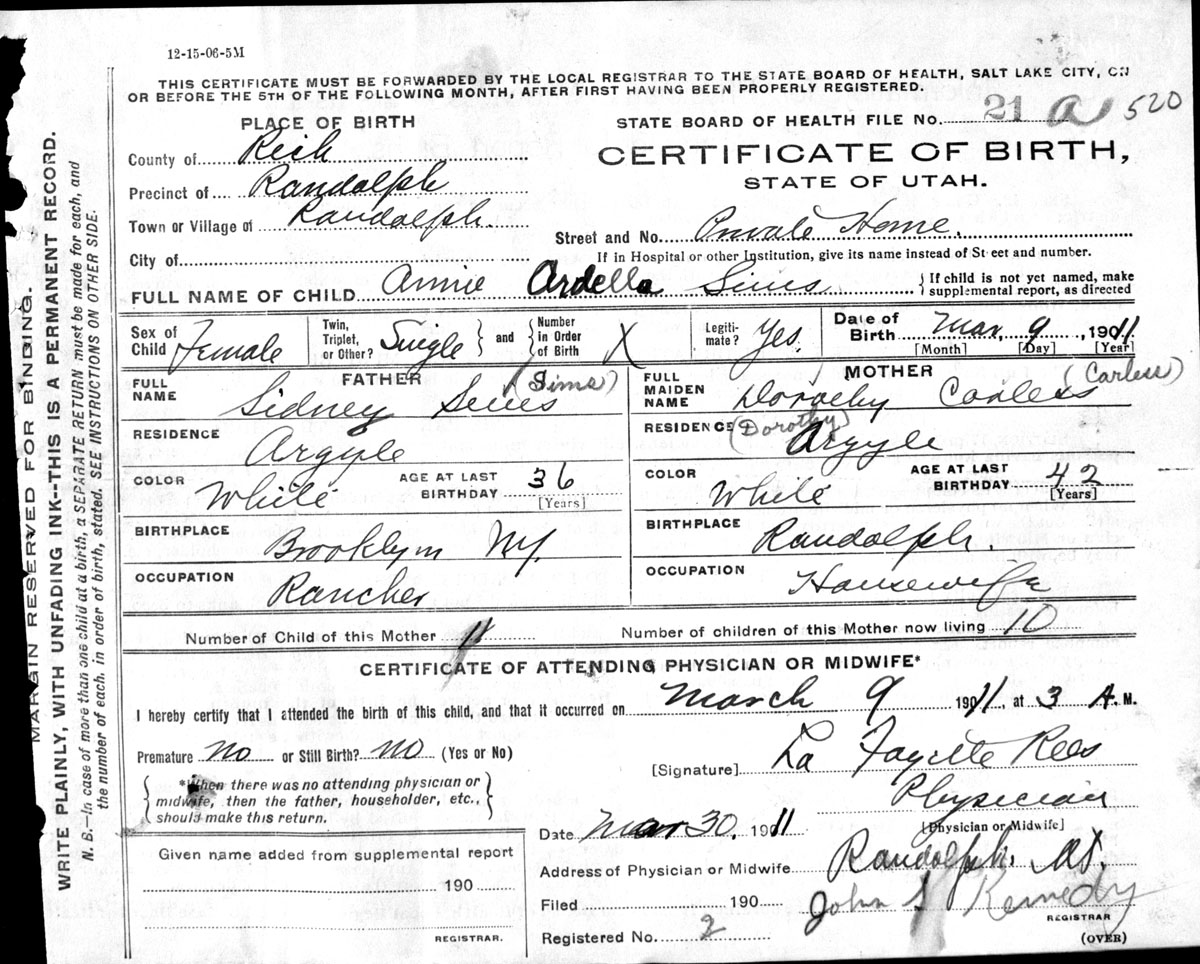 12-15-06-5M
THIS CERTIFICATE MUST BE FORWARDED BY THE LOCAL REGISTRAR TO THE STATE BOARD OF HEALTH, SALT LAKE CITY, ON
OR BEFORE THE 5TH OF THE FOLLOWING MONTH, AFTER FIRST HAVING BEEN PROPERLY REGISTERED.
PLACE OF BIRTH
STATE BOARD OF HEALTH FILE No. 21 a 520
County of Rich
CERTIFICATE OF BIRTH,
STATE OF UTAH.
Precinct of Randolph
Town or Village of Randolph.
Street and No. Private Home.
City of
If in Hospital or other Institution, give its name instead of Street and number.
FULL NAME OF CHILD Annie Ardella Sims
If child is not yet named, make
supplemental report, as directed
Sex of Child Female
Twin, Triplet, or Other? Single and Number in Order of Birth X
Legitimate? Yes.
Date of Birth Mar, 9, 1911
[Month] [Day] [Year]
FATHER
FULL NAME Sidney Sims (Sims)
RESIDENCE Argyle
COLOR White
AGE AT LAST BIRTHDAY 36
[Years]
BIRTHPLACE Brooklyn Ny.
OCCUPATION Rancher
MOTHER
FULL MAIDEN NAME Dorothy Corless (Carless)
(Dorothy)
RESIDENCE Argyle
COLOR White
AGE AT LAST BIRTHDAY 42
[Years]
BIRTHPLACE Randolph.
OCCUPATION Housewife
Number of Child of this Mother 11
Number of children of this Mother now living 10
CERTIFICATE OF ATTENDING PHYSICIAN OR MIDWIFE*
I hereby certify that I attended the birth of this child, and that it occurred on March 9 1911, at 3 A.M.
Premature No or Still Birth? No (Yes or No)
[Signature] La Fayette Rees
Physician
[Physician or Midwife]
*When there was no attending physician or
midwife, then the father, householder, etc.,
should make this return.
Date Mar 30, 1911
Given name added from supplemental report
190
REGISTRAR.
Address of Physician or Midwife Randolph. Ut.
Filed 190 John S Kennedy
REGISTRAR
Registered No. 2
(OVER)
MARGIN RESERVED FOR BINDING.
WRITE PLAINLY, WITH UNFADING INK--THIS IS A PERMANENT RECORD.
N. B.--In case of more than one child at a birth, a SEPARATE RETURN must be made for each, and
the number of each, in order of birth, stated. SEE INSTRUCTIONS ON OTHER SIDE.